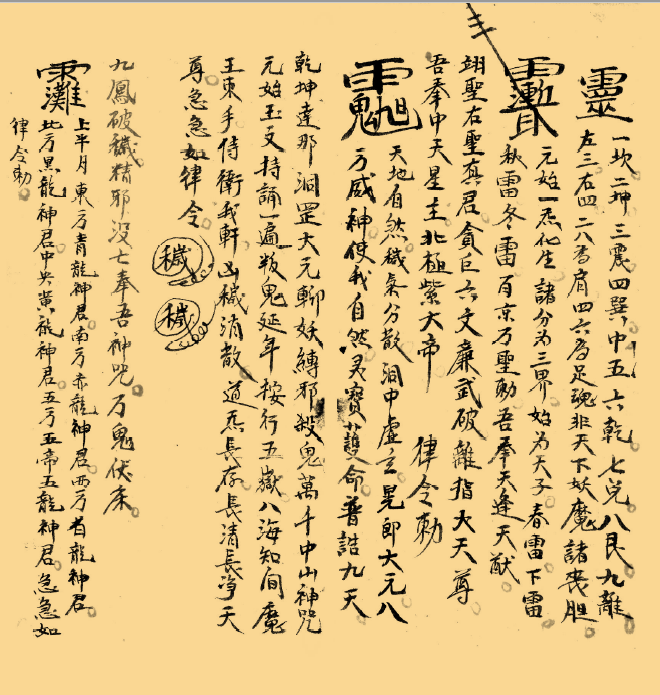 靈
一坎二坤三震四巽中五六乾七兌八艮九離
左三右四二六為肩四六為足魂非天下妖魔諸喪胆
元始一炁化生諸分為三界始為天子春雷下雷
秋雷冬雷百京万聖勅吾奉天逢天猷
翊聖右聖真君貪巨六文廉武破離指大天尊
吾奉中天星主北極紫大帝 律令勅
天地自然穢氣分散洞中虛玄晃郎大元八
方威神使我自然灵寶護命普誥九天
乾坤達那洞罡大元斬妖縛邪殺鬼萬千中山神咒
元始玉文持誦一遍叛鬼延年按行五嶽八海知聞魔
王束手侍衛我軒凶穢消散道炁長存長清長淨天
尊急急如律令 穢 穢
九鳳破穢精邪没亡奉吾神咒万鬼伏床
上半月東方青龍神君南方赤龍神君西方白龍神君
北方黑龍神君中央黃龍神君五方五帝五龍神君急急如
律令勅